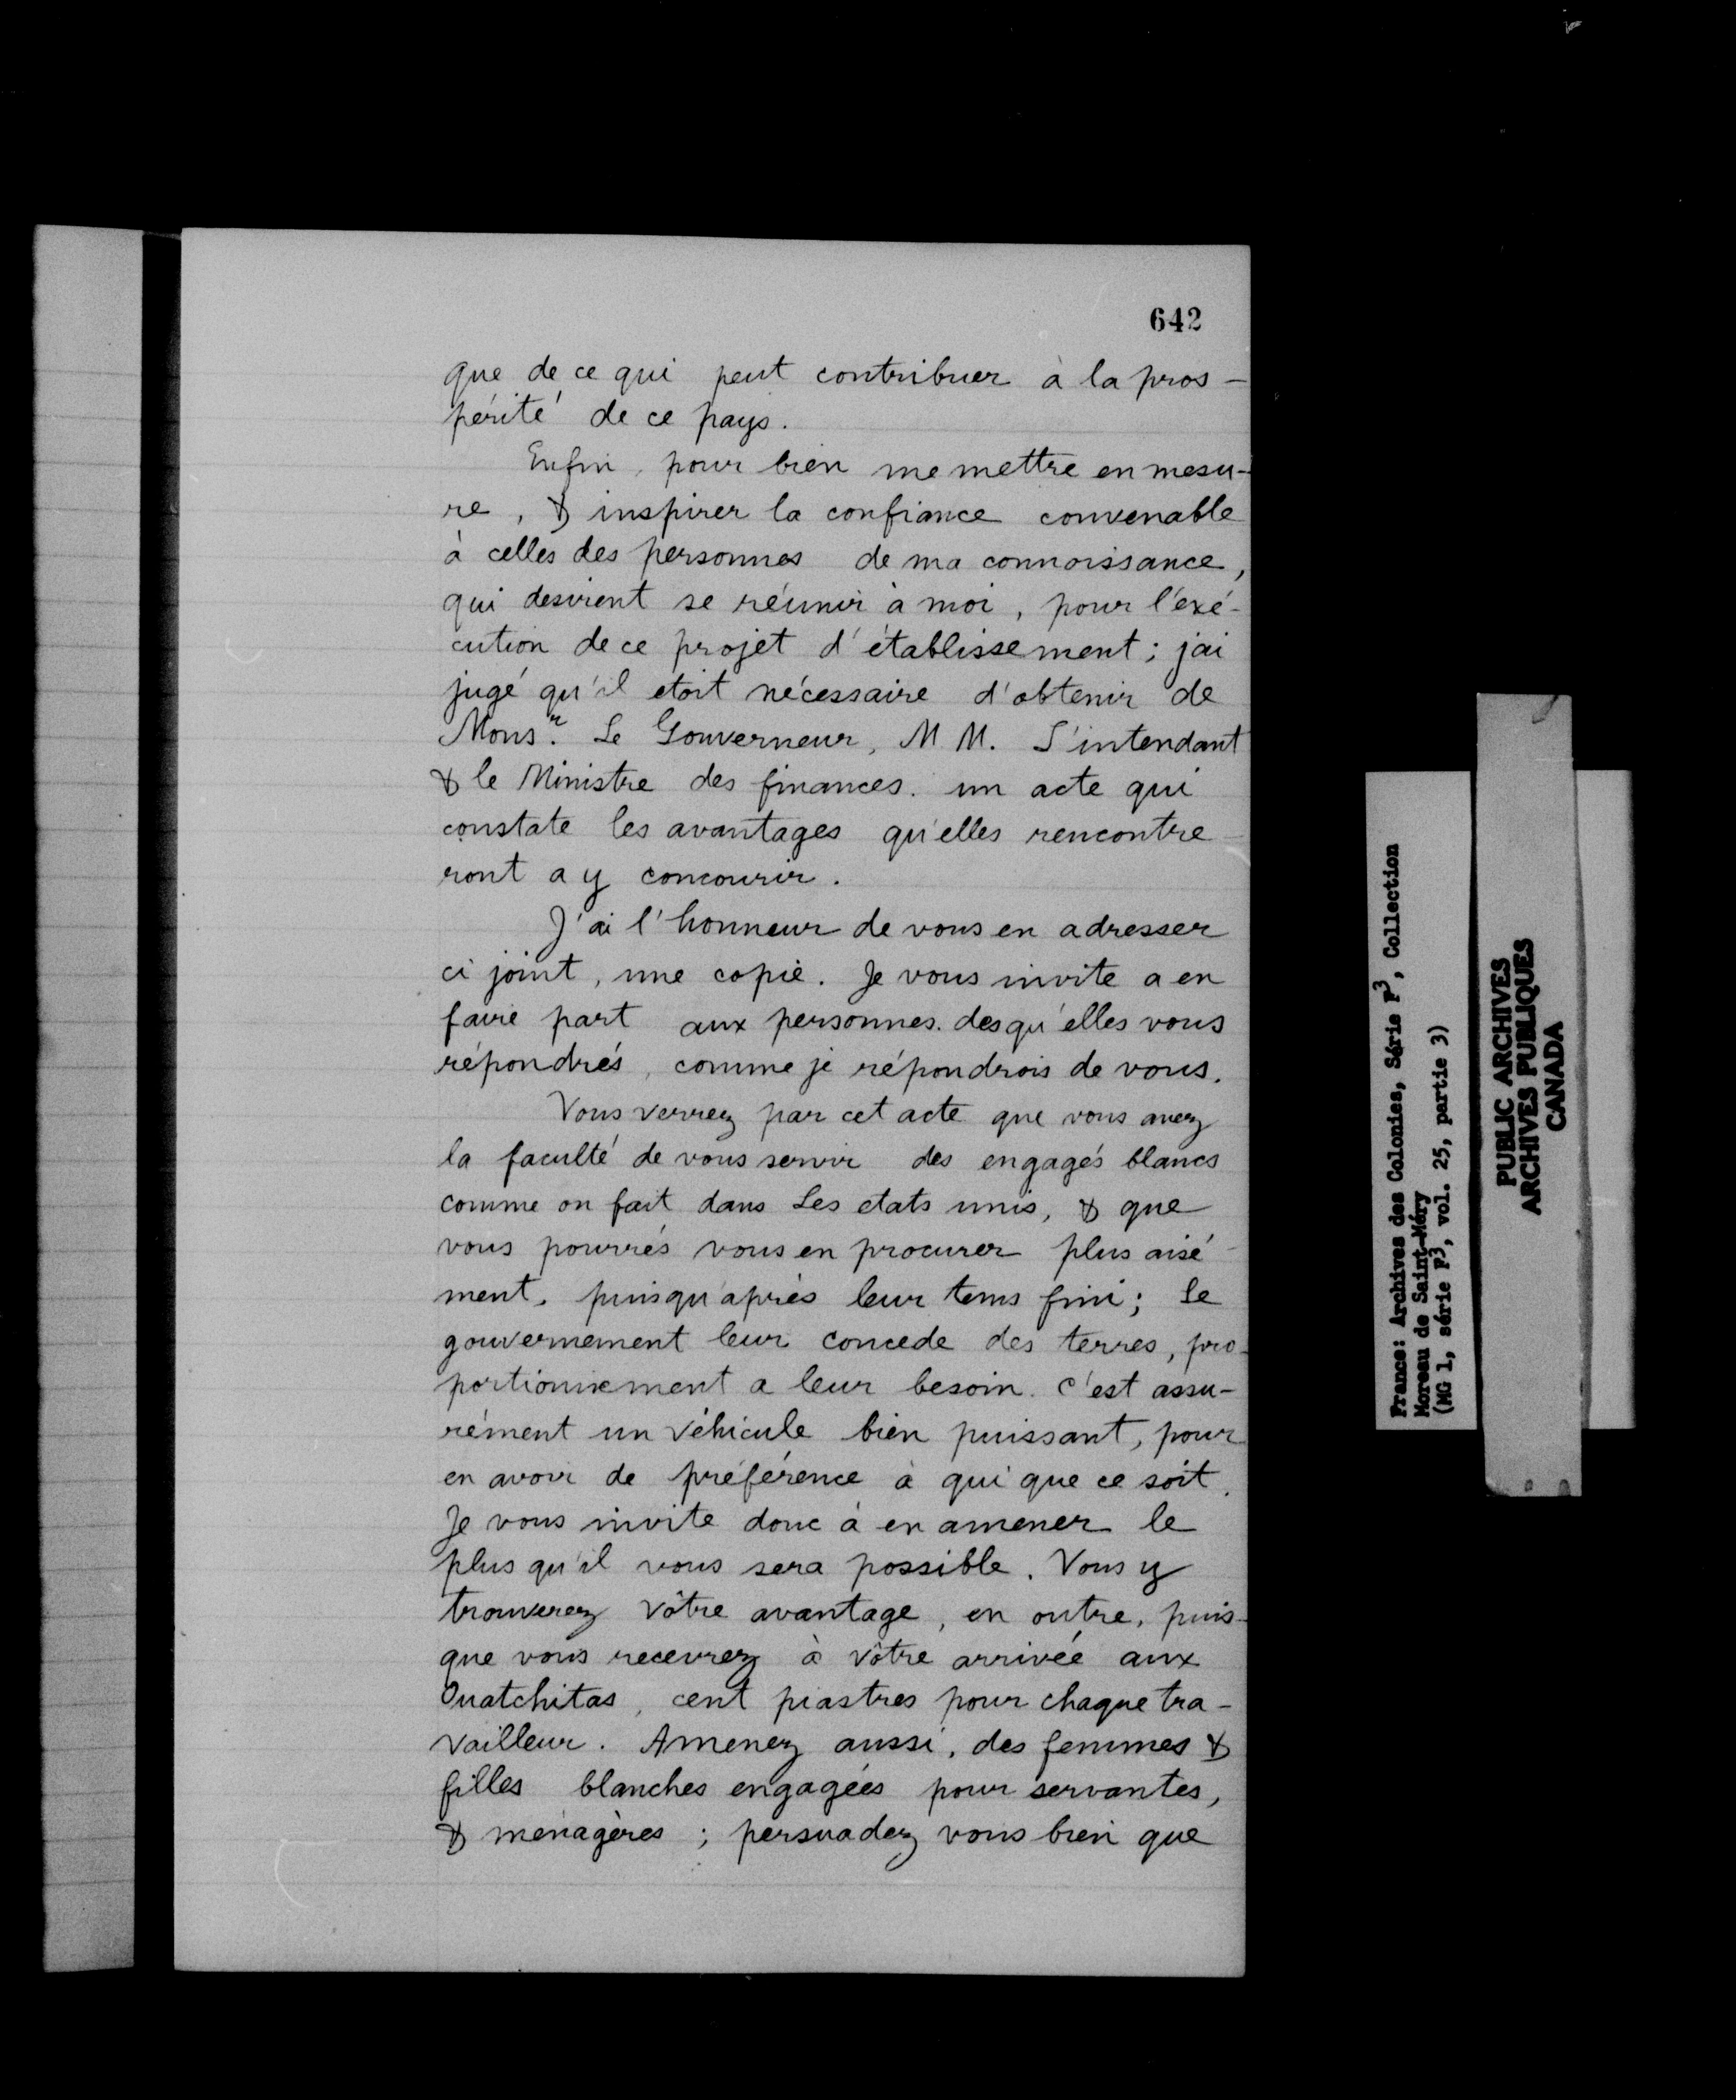 642
que de ce qui peut contribuer à la pros-
périté de ce pays.
Enfin, pour bien me mettre en mesu-
re, & inspirer la confiance convenable
à celles des personnes de ma connoissance,
qui desirent se réunir à moi, pour l'exé-
cution de ce projet d'établissement; j'ai
jugé qu'il etoit nécessaire d'obtenir de
Monsr. Le Gouverneur, M M. L'intendant
& le Ministre des finances. un acte qui
constate les avantages qu'elles rencontre-
ront a y concourir.
J'ai l'honneur de vous en adresser
ci joint, une copie. Je vous invite a en
faire part aux personnes. desqu'elles vous
répondrés, comme je répondrois de vous.
Vous verrez par cet acte que vous avez
la faculté de vous servir des engagés blancs
comme on fait dans Les etats unis, & que
vous pourrés vous en procurer plus aisé-
ment. puisqu'après leur tems fini; Le
gouvernement leur concede des terres, pro-
portionnement a leur besoin. C'est assu-
rément un véhicule bien puissant, pour
en avoir de préférence à qui que ce soit.
Je vous invite donc à en amener le
plus qu'il vous sera possible. Vous y
trouverez vôtre avantage, en outre, puis-
que vous recevrez à vôtre arrivée aux
Ouatchitas, cent piastres pour chaque tra-
vailleur. Amenez aussi, des femmes &
filles blanches engagées pour servantes,
& ménagères; persuadez vous bien que
France: Archives des Colonies, Série F3, Collection
Moreau de Saint-Méry
(MG 1, série F3, vol. 25, partie 3)
PUBLIC ARCHIVES
ARCHIVES PUBLIQUES
CANADA